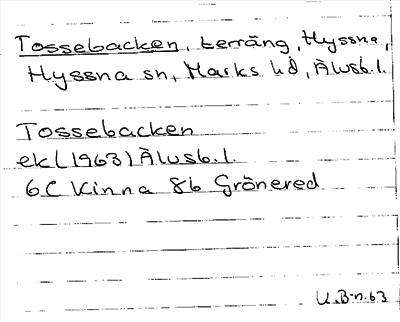 Tossebacken, terräng, Hyssna,
Hyssna sn, Marks hd, Älvsb. l.
Tossebacken
ek (1963) Älvsb. l.
6C Kinna 8b Grönered
U.B-n. 63